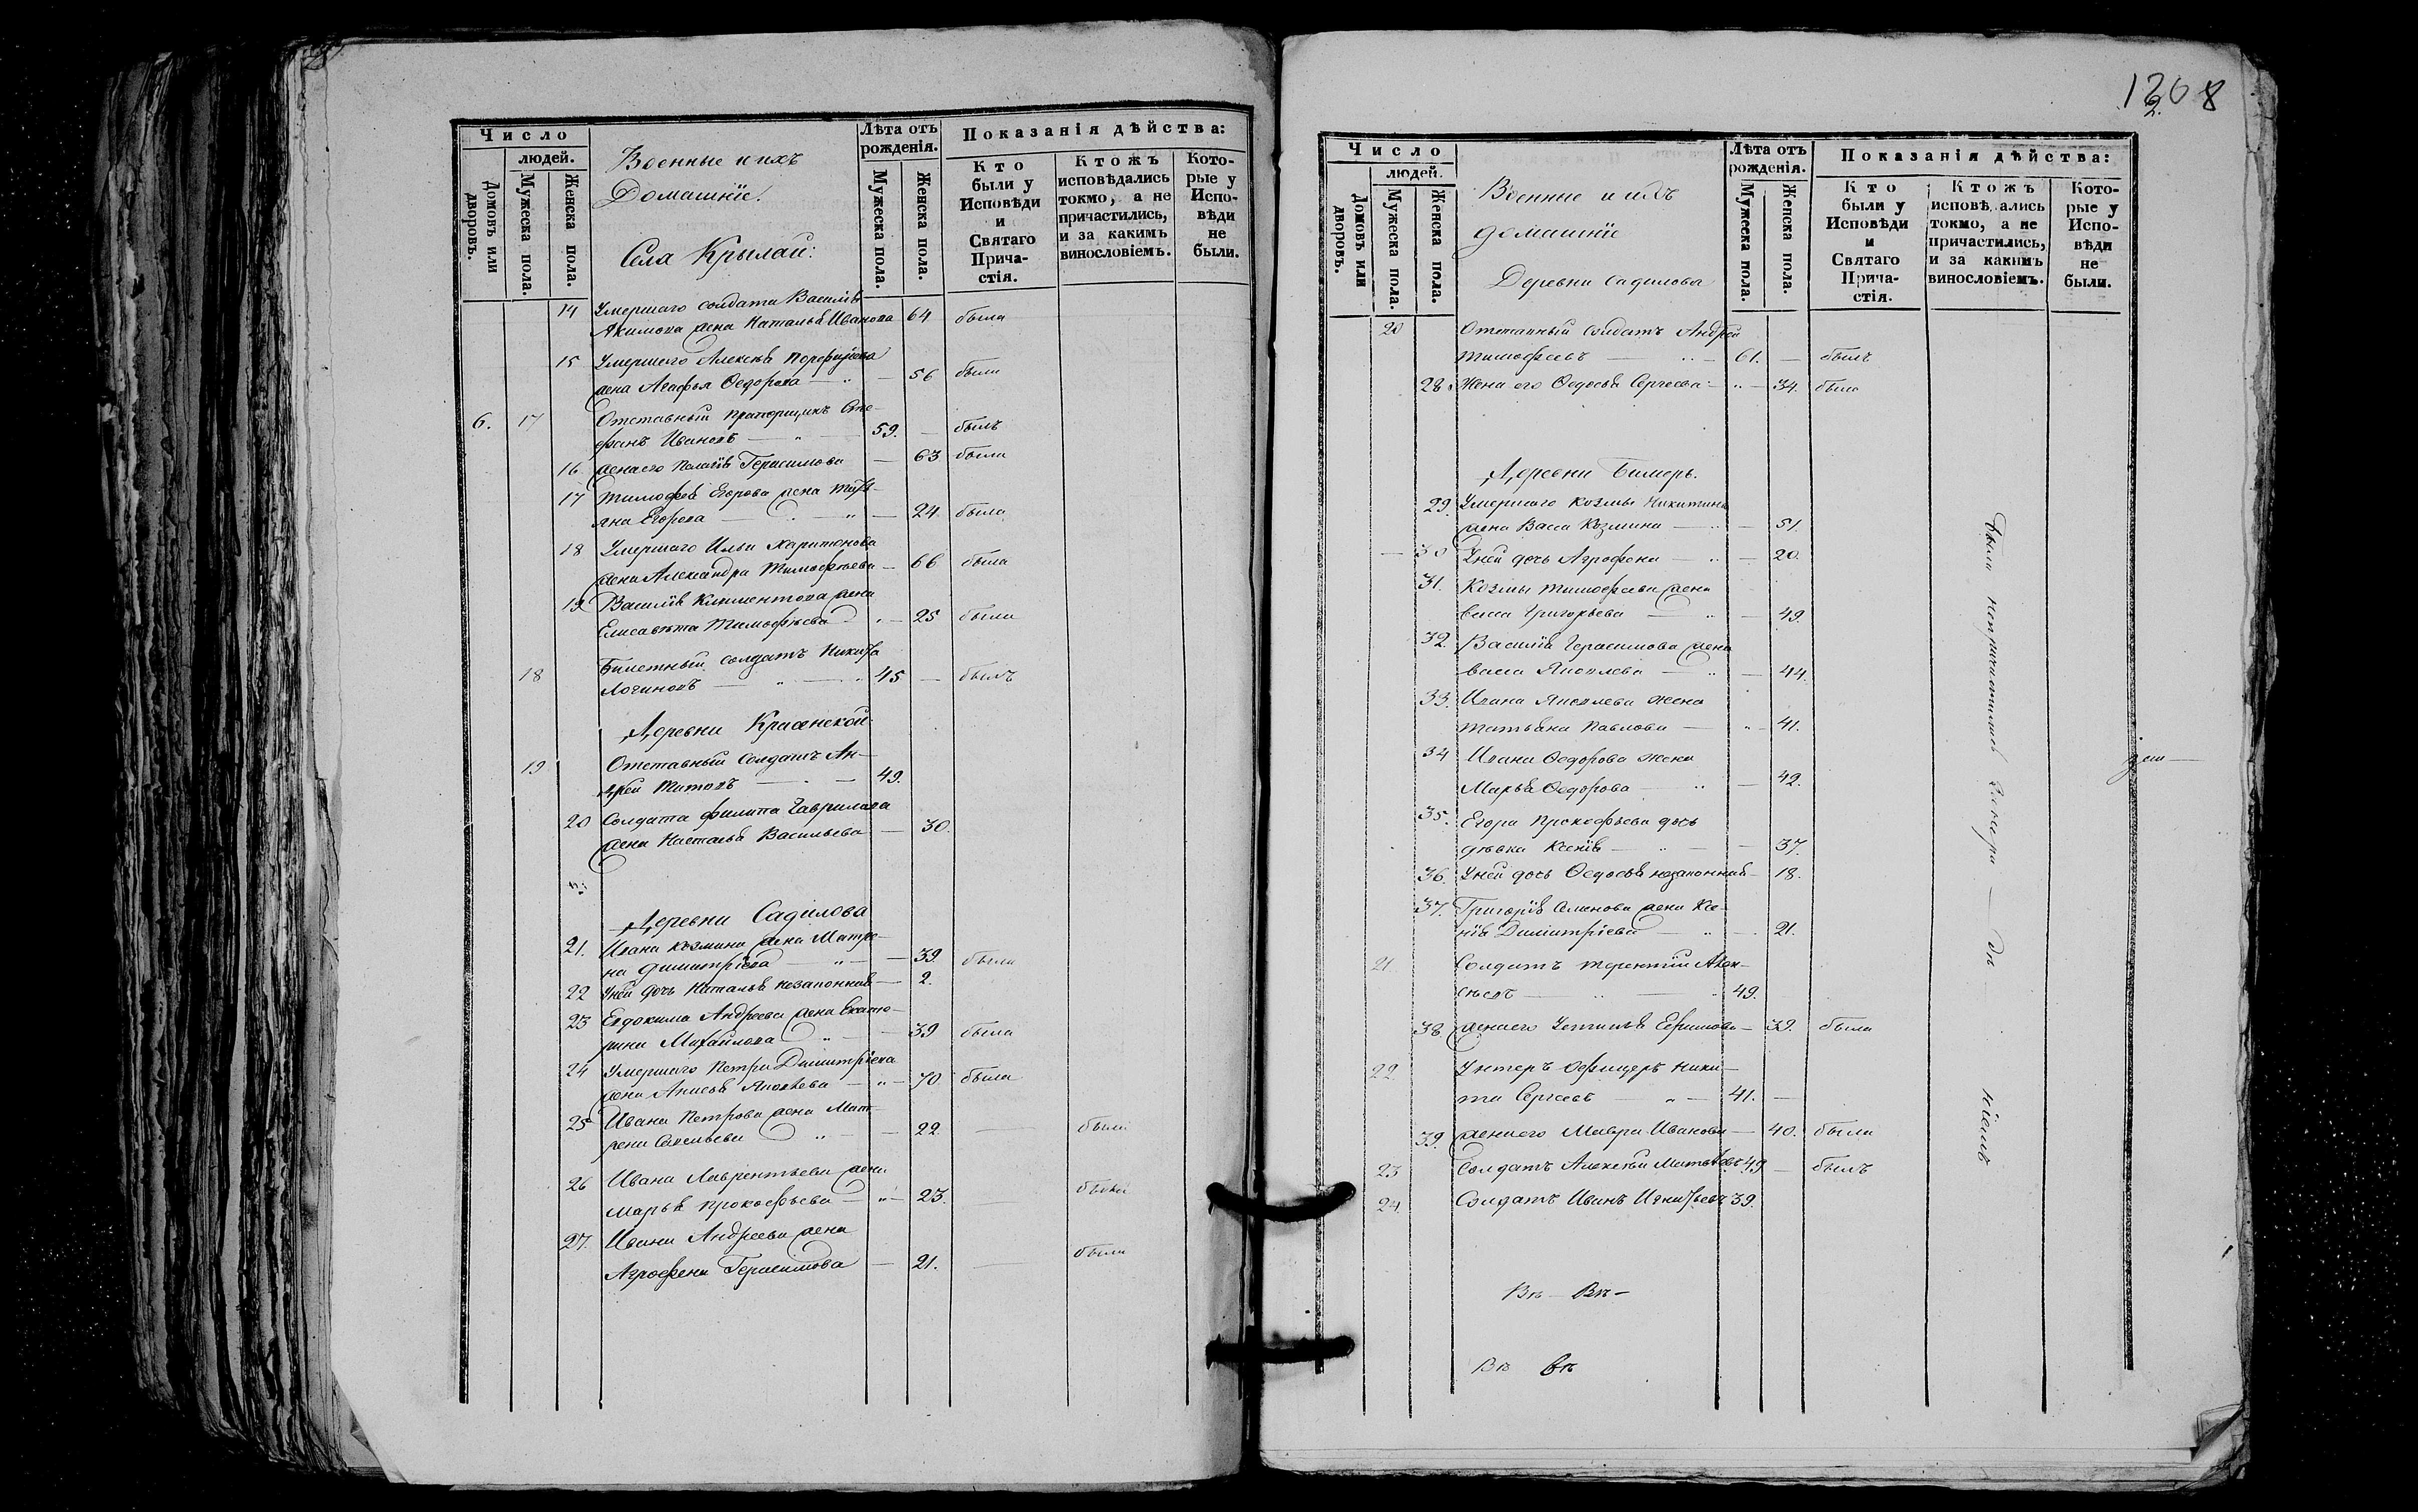 Число
людей.
Домовъ или дворовъ.
Мужеска пола.
Женска пола.
Военные и ихъ
Домашніе.
Села Крылай:
Лѣта отъ рожденія.
Мужеска пола.
Женска пола.
Показанія дѣйства:
Кто были у Исповѣди и Святаго Прича-стія.
Ктожъ исповѣдались токмо, а не причастились, и за какимъ винословіемъ.
Кото-рые у Испо-вѣди не были.
14 Умершаго солдата Василія
Акимова жена Наталья Иванова 64 была
15 Умершаго Алексѣя Порфирьева
жена Агафья Ѳедорова — 56 была
6. 17 Отставный прапорщикъ Сте-
фанъ Ивановъ — 59. — былъ
16 жена его Пелагія Герасимова — 63 была
17 Тимофея Егорова жена Татья-
яна Егорова — 24 была
18 Умершаго Ильи Харитонова
жена Александра Тимофеева — 66 была
19 Василія Климентова жена
Елисавета Тимофѣева — 25 была
18 Билетный солдатъ Никита
Логиновъ — 45 — былъ
Деревни Красенской
19 Отставный солдатъ Ан-
дрей Титовъ — 49.
20 Солдата Филиппа Гаврилова
жена Настасья Васильева — 30.
Деревни Садилова
21. Ивана Козмина жена Матре-
на Димитріева — 39. была
22 У ней дочь Наталья незаконная — 2.
23 Евдокима Андреева жена Екате-
рина Михайлова — 39 была
24 Умершаго Петра Димитріева
жена Анисья Яковлева — 70 была
25 Ивана Петрова жена Мат-
рена Савельева — 22. — была
26 Ивана Лаврентьева жена
Марья Прокофьева — 23. — была
27. Ивана Андреева жена
Агрофена Герасимова — 21. — была
1268
2.
Число
людей.
Домовъ или дворовъ.
Мужеска пола.
Женска пола.
Военные и ихъ
домашніе
Деревни Садилова
Лѣта отъ рожденія.
Мужеска пола.
Женска пола.
Показанія дѣйства:
Кто были у Исповѣди и Святаго Прича-стія.
Ктожъ исповѣ ались токмо, а не причастились, и за какимъ винословіемъ.
Кото-рые у Испо-вѣди не были.
20 Отставный солдатъ Андрей
Тимофеевъ — 61. — былъ
28. Жена его Ѳедосья Сергеева — 34. была
Деревни Бимерь.
29. Умершаго Козмы Никитина
жена Васса Козмина — 51.
30 У ней дочь Агрофена — 20.
31. Козмы Тимофеева жена
Васса Григорьева — 49.
32. Василія Герасимова жена
Васса Яковлева — 44.
33. Ивана Яковлева жена
Татьяна Павлова — 41.
34 Ивана Ѳедорова жена
Марья Ѳедорова — 42.
35. Егора Прокофьева дочь
дѣвка Ксенія — 37.
36. У ней дочь Ѳедосья незаконная — 18.
37. Григорія Семенова жена Ксе-
нія Димитріева — 21.
21. Солдатъ Терентій Алек-
сѣевъ — 49.
38 жена его Устинья Ефимова — 39. была
22. Унтеръ Офицеръ Ники-
та Сергеевъ — 41. —
39. жена его Мавра Иванова — 40. была
23 Солдатъ Алексѣй Матвѣевъ 49 — былъ
24. Солдатъ Иванъ Игнатьевъ 39.